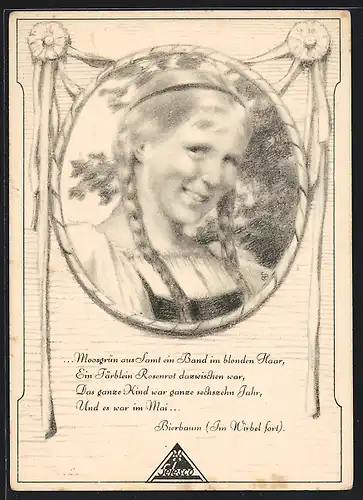 ...Moosgrün aus Samt ein Band im blonden Haar,
Ein Färblein Rosenrot dazwischen war,
Das ganze Kind war ganze sechszehn Jahr,
Und es war im Mai...
Bierbaum (Im Wirbel fort).